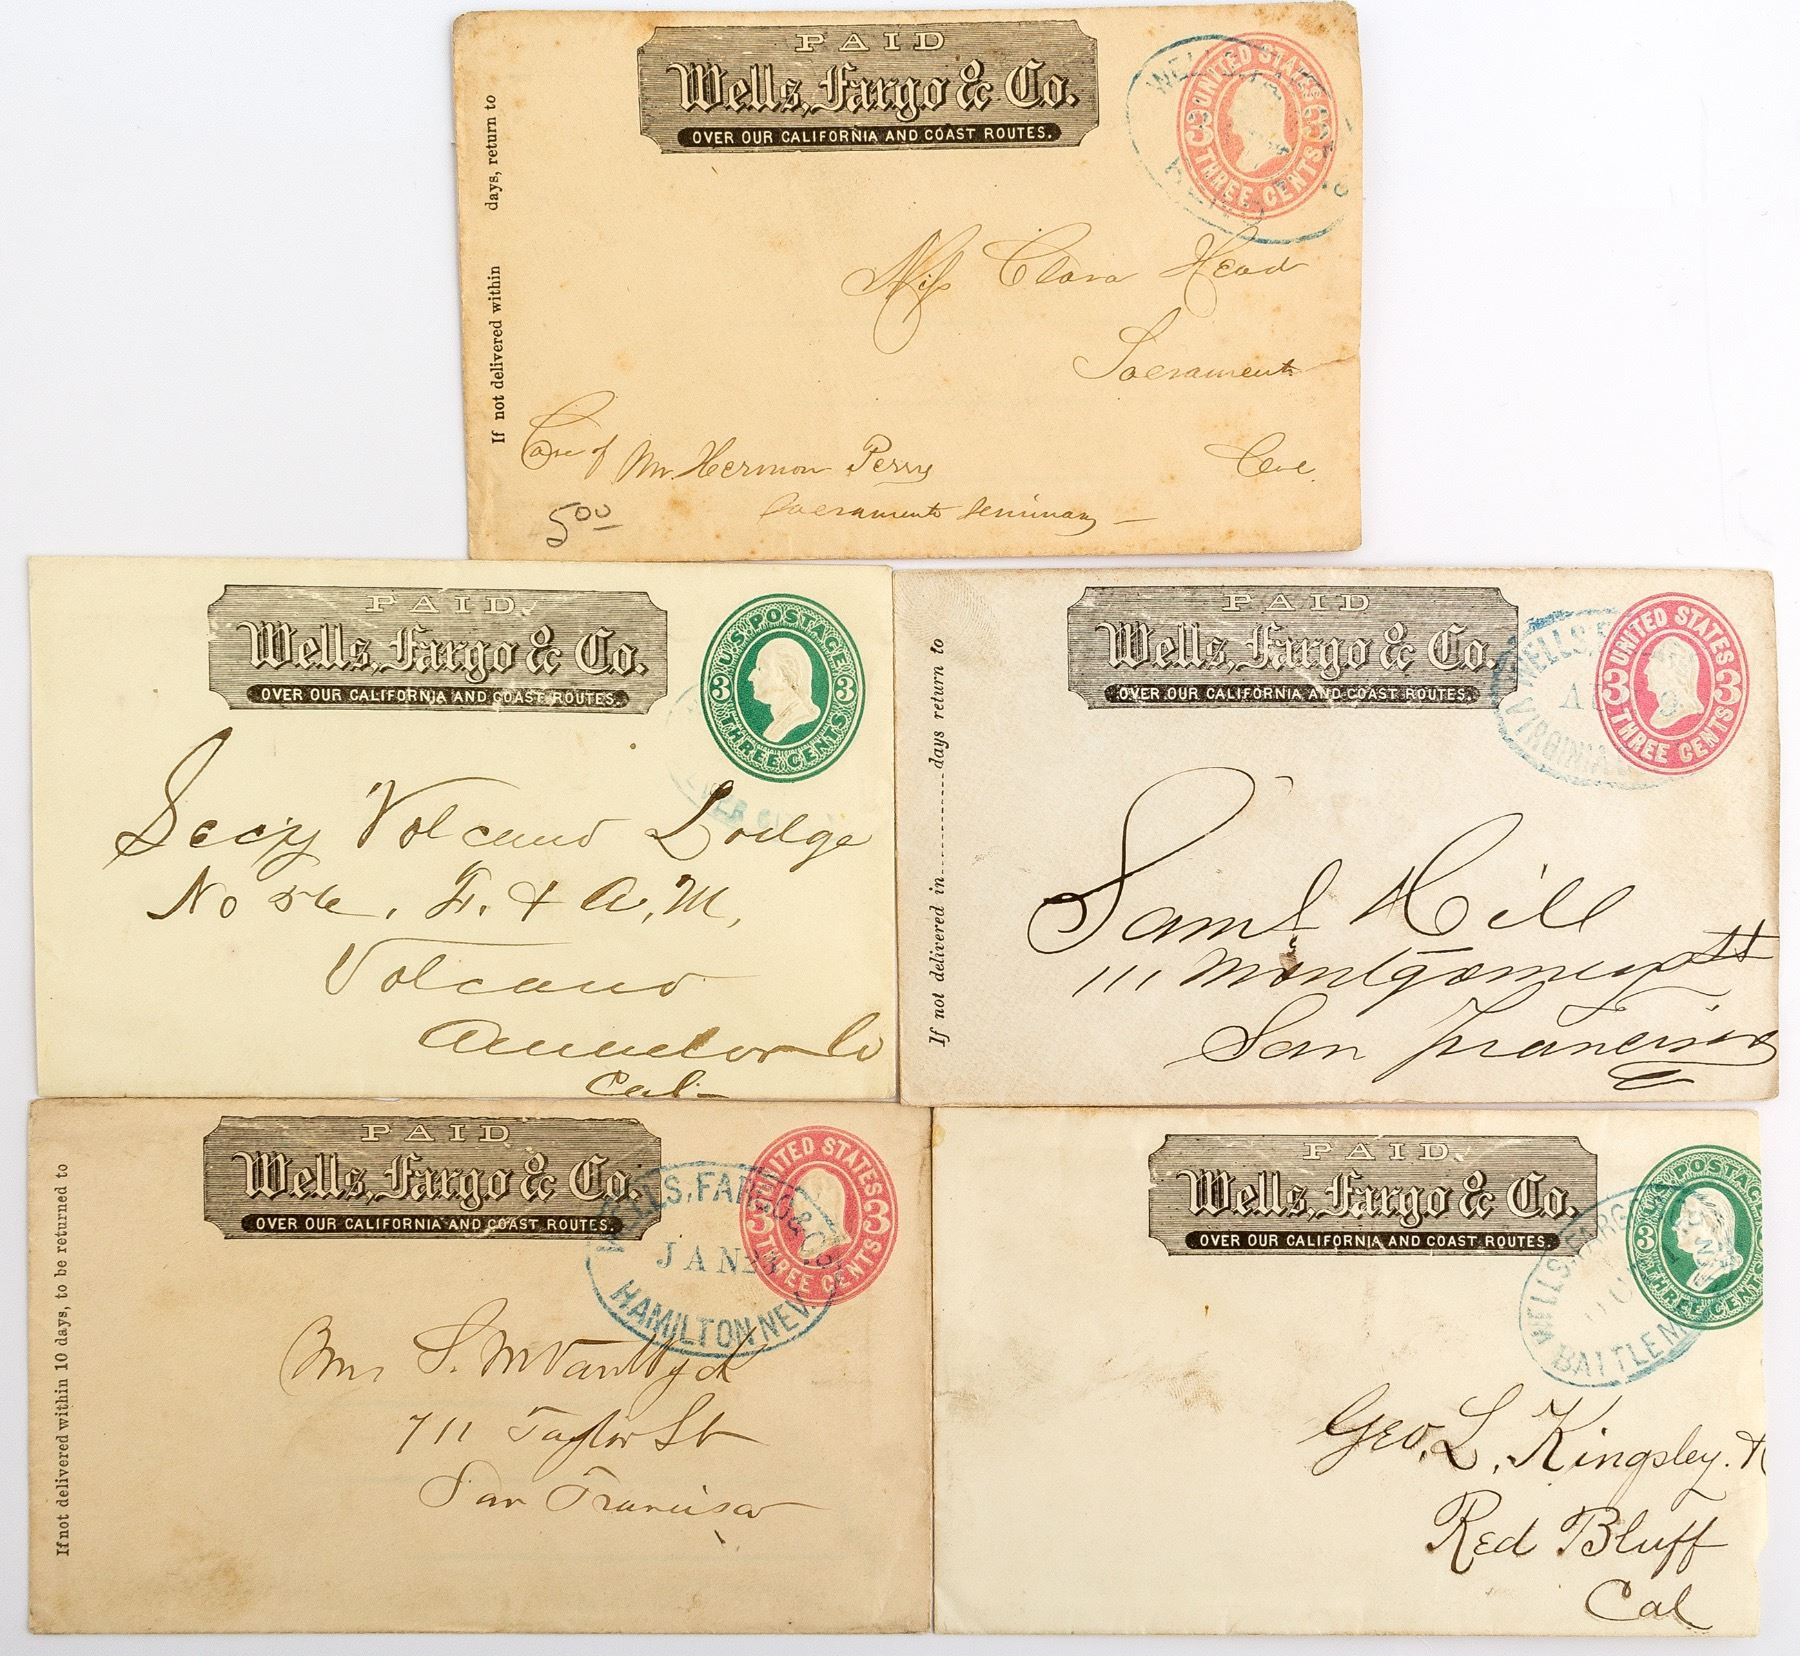 PAID
Wells, Fargo & Co.
OVER OUR CALIFORNIA AND COAST ROUTES.
UNITED STATES
3 3
THREE CENTS
If not delivered within days, return to
Miss Clara Head
Sacramento
Care of Mr. Hermon Perry
Sacramento Seminary
5 00
PAID
Wells, Fargo & Co.
OVER OUR CALIFORNIA AND COAST ROUTES.
U.S. POSTAGE
3 3
THREE CENTS
Secy Volcano Lodge
No 56, F. & A. M,
Volcano
Amador Co
Cal
PAID
Wells, Fargo & Co.
OVER OUR CALIFORNIA AND COAST ROUTES.
WELLS,
VIRGINIA
UNITED STATES
3 3
THREE CENTS
If not delivered in days return to
Saml Hill
111 Montgomery St
San Francisco
PAID
Wells, Fargo & Co.
OVER OUR CALIFORNIA AND COAST ROUTES.
WELLS, FARGO & CO.
JAN 23
HAMILTON NEV.
UNITED STATES
3 3
THREE CENTS
If not delivered within 10 days, to be returned to
Mrs S. M VanWyck
711 Taylor St
San Francisco
PAID
Wells, Fargo & Co.
OVER OUR CALIFORNIA AND COAST ROUTES.
WELLS, FARGO
BATTLE M
U.S. POSTAGE
3
THREE CENTS
Geo. L. Kingsley.
Red Bluff
Cal